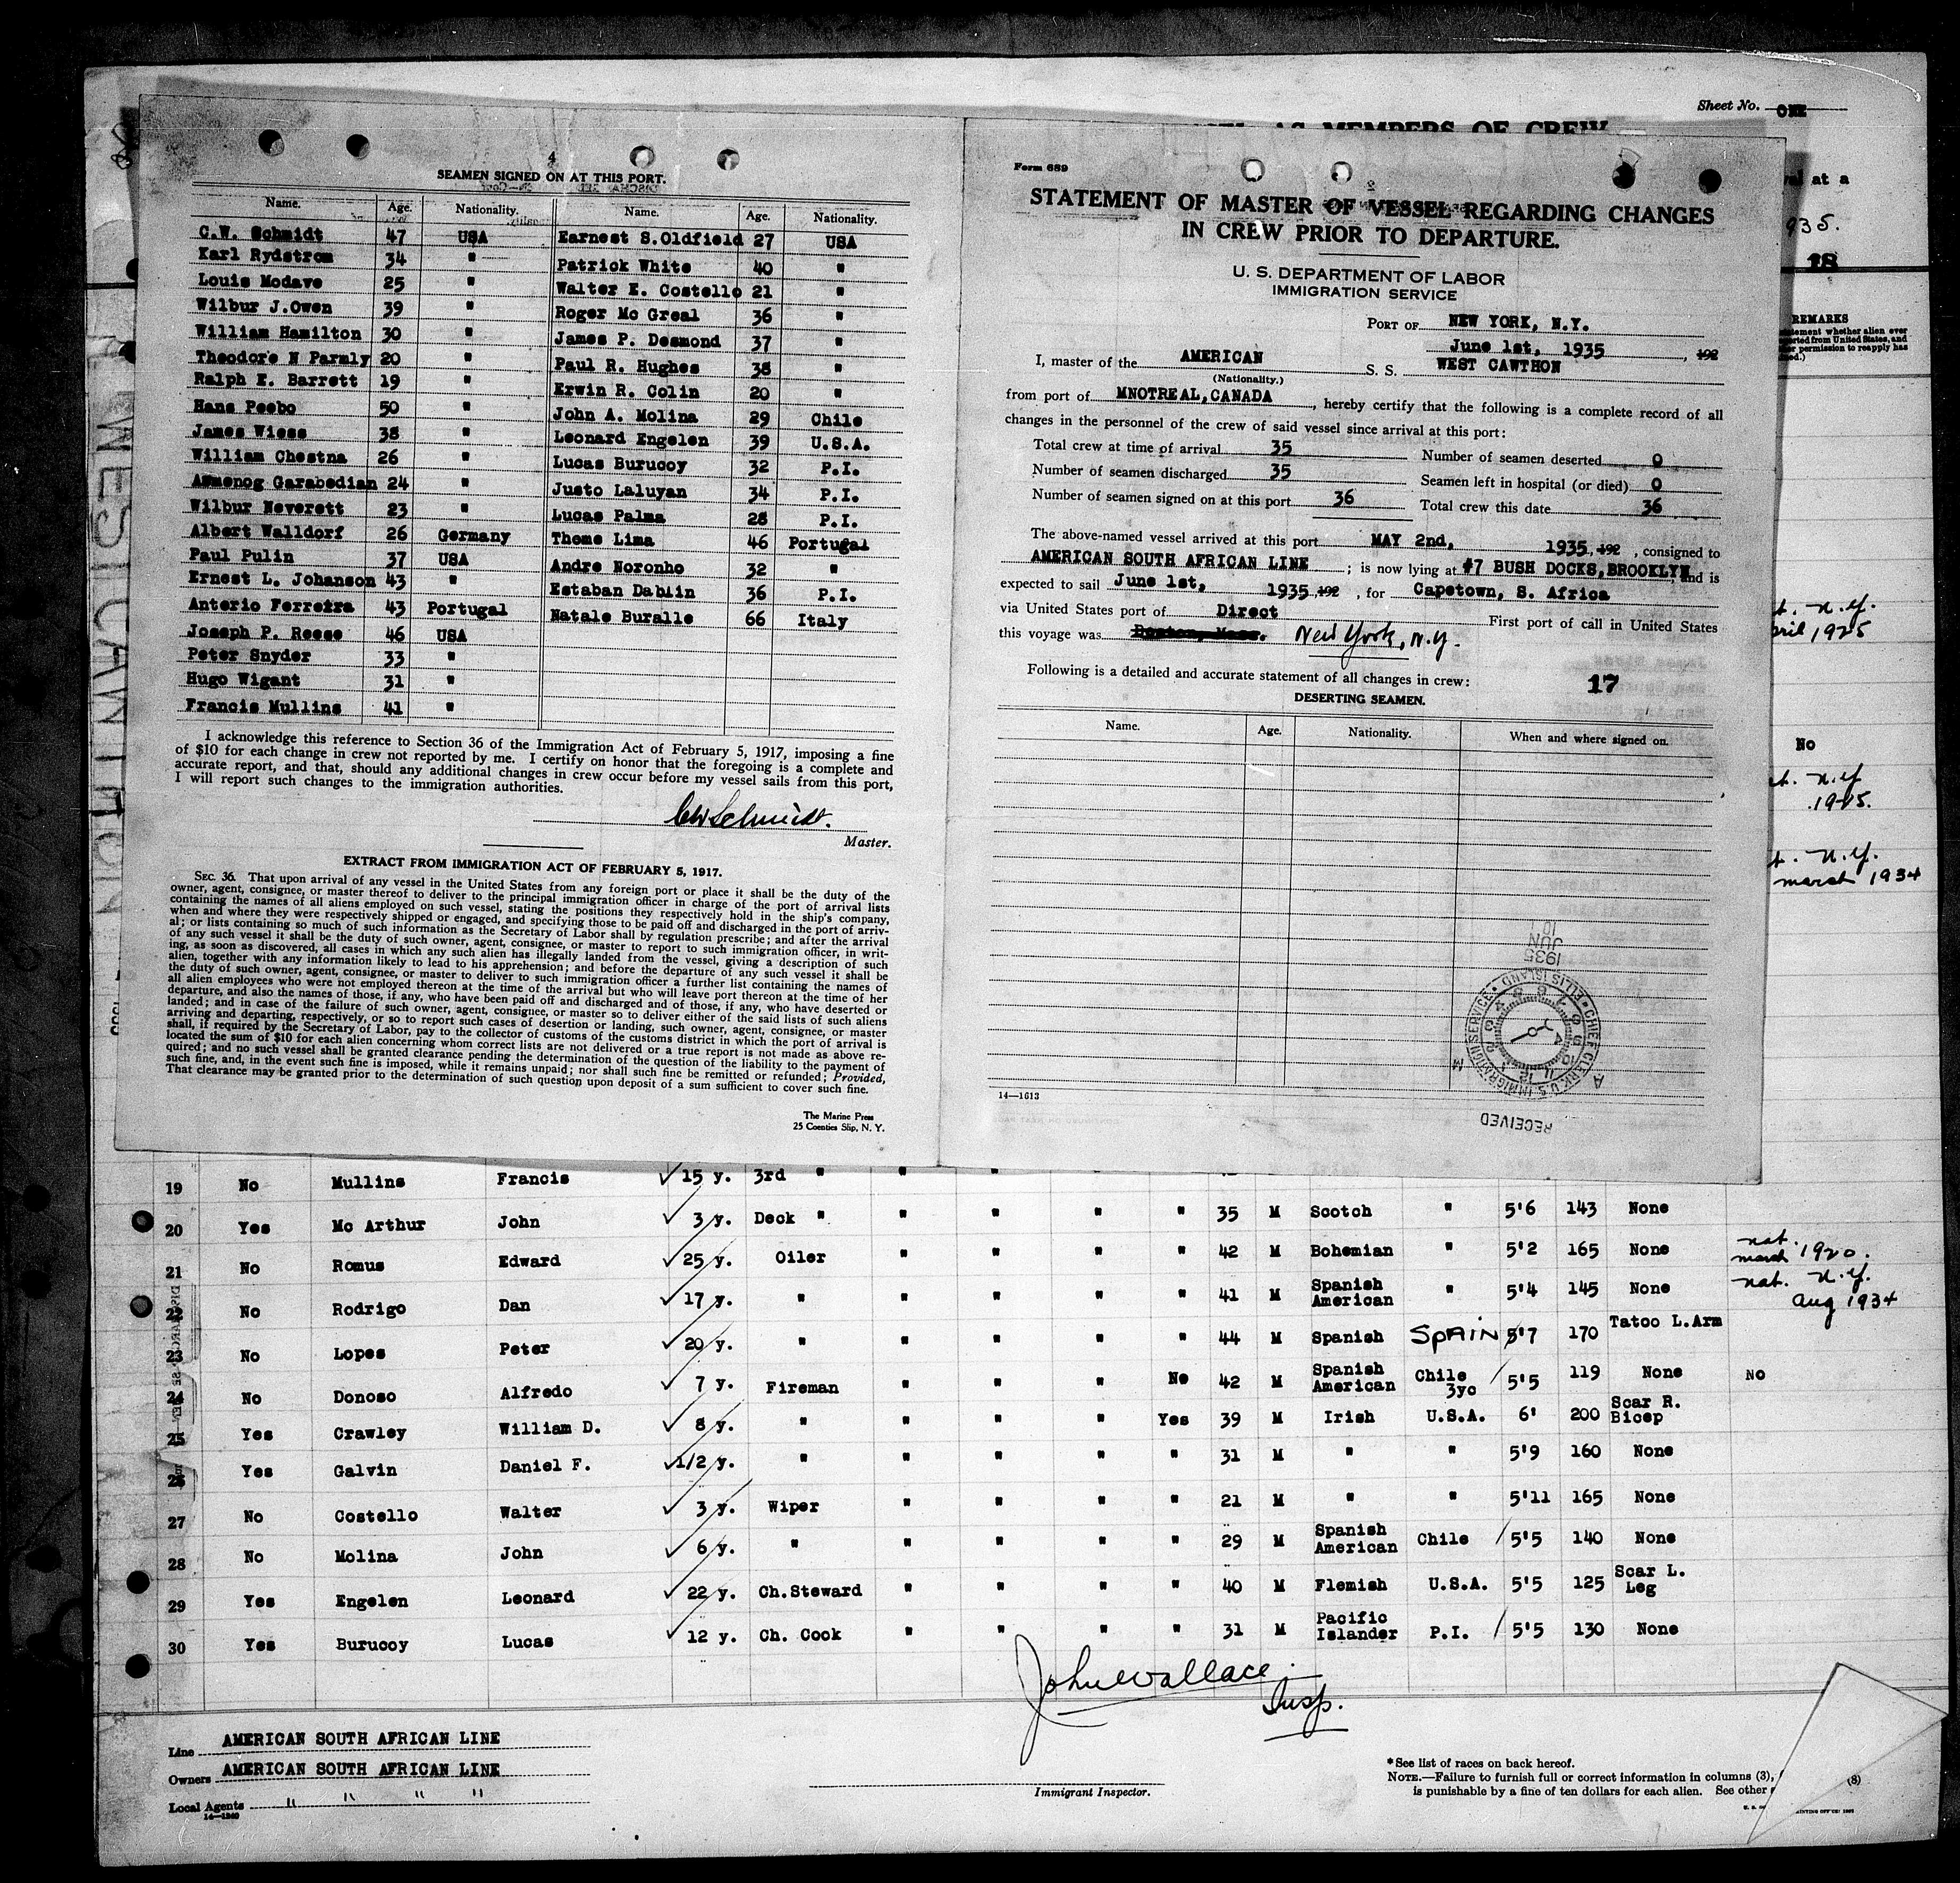 Sheet No. ONE
MEMBERS OF CREW
val at a
935.
18
REMARKS
4
SEAMEN SIGNED ON AT THIS PORT.
Name. Age. Nationality. Name. Age. Nationality.
C.W. Schmidt 47 USA Earnest S.Oldfield 27 USA
Karl Rydstrom 34 " Patrick White 40 "
Louis Modave 25 " Walter E. Costello 21 "
Wilbur J.Owen 39 " Roger Mc Greal 36 "
William Hamilton 30 " James P. Desmond 37 "
Theodore N Parmly 20 " Paul R. Hughes 38 "
Ralph E. Barrett 19 " Erwin R. Colin 20 "
Hans Peebo 50 " John A. Molina 29 Chile
James Wiess 38 " Leonard Engelen 39 U.S.A.
William Chestna 26 " Lucas Burucoy 32 P.I.
Garabedian 24 " Justo Laluyan 34 P.I.
Wilbur Neverett 23 " Lucas Palma 28 P.I.
Albert Walldorf 26 Germany Thome Lima 46 Portugal
Paul Pulin 37 USA Andre Noronho 32 "
Ernest L. Johanson 43 " Estaban Dablin 36 P.I.
Anterio Ferreira 43 Portugal Natale Buralle 66 Italy
Joseph P. Reese 46 USA
Peter Snyder 33 "
Hugo Wigant 31 "
Francis Mullins 41 "
I acknowledge this reference to Section 36 of the Immigration Act of February 5, 1917, imposing a fine
of $10 for each change in crew not reported by me. I certify on honor that the foregoing is a complete and
accurate report, and that, should any additional changes in crew occur before my vessel sails from this port,
I will report such changes to the immigration authorities.
CW Schmidt.
Master.
EXTRACT FROM IMMIGRATION ACT OF FEBRUARY 5, 1917.
SEC. 36. That upon arrival of any vessel in the United States from any foreign port or place it shall be the duty of the
owner, agent, consignee, or master thereof to deliver to the principal immigration officer in charge of the port of arrival lists
containing the names of all aliens employed on such vessel, stating the positions they respectively hold in the ship's company,
when and where they were respectively shipped or engaged, and specifying those to be paid off and discharged in the port of arriv-
al; or lists containing so much of such information as the Secretary of Labor shall by regulation prescribe; and after the arrival
of any such vessel it shall be the duty of such owner, agent, consignee, or master to report to such immigration officer, in writ-
ing, as soon as discovered, all cases in which any such alien has illegally landed from the vessel, giving a description of such
alien, together with any information likely to lead to his apprehension; and before the departure of any such vessel it shall be
the duty of such owner, agent, consignee, or master to deliver to such immigration officer a further list containing the names of
all alien employees who were not employed thereon at the time of the arrival but who will leave port thereon at the time of her
departure, and also the names of those, if any, who have been paid off and discharged and of those, if any, who have deserted or
landed; and in case of the failure of such owner, agent, consignee, or master so to deliver either of the said lists of such aliens
arriving and departing, respectively, or so to report such cases of desertion or landing, such owner, agent, consignee, or master
shall, if required by the Secretary of Labor, pay to the collector of customs of the customs district in which the port of arrival is
located the sum of $10 for each alien concerning whom correct lists are not delivered or a true report is not made as above re-
quired; and no such vessel shall be granted clearance pending the determination of the question of the liability to the payment of
such fine, and, in the event such fine is imposed, while it remains unpaid; nor shall such fine be remitted or refunded; Provided,
That clearance may be granted prior to the determination of such question upon deposit of a sum sufficient to cover such fine.
The Marine Press
25 Coenties Slip, N. Y.
Form 689
STATEMENT OF MASTER OF VESSEL REGARDING CHANGES
IN CREW PRIOR TO DEPARTURE.
U. S. DEPARTMENT OF LABOR
IMMIGRATION SERVICE
PORT OF NEW YORK, N.Y.
June 1st, 1935, 192
I, master of the AMERICAN S. S. WEST CAWTHON
(Nationality.)
from port of MNOTREAL,CANADA, hereby certify that the following is a complete record of all
changes in the personnel of the crew of said vessel since arrival at this port:
Total crew at time of arrival 35 Number of seamen deserted 0
Number of seamen discharged 35 Seamen left in hospital (or died) 0
Number of seamen signed on at this port 36 Total crew this date 36
The above-named vessel arrived at this port MAY 2nd, 1935, 192, consigned to
AMERICAN SOUTH AFRICAN LINE; is now lying at #7 BUSH DOCKS, BROOKLYN and is
expected to sail June 1st, 1935 192, for Capetown, S. Africa
via United States port of Direct First port of call in United States
this voyage was Boston, Mass. New York, N.Y.
Following is a detailed and accurate statement of all changes in crew: 17
DESERTING SEAMEN.
Name. Age. Nationality. When and where signed on.
1935
JUN
10
CHIEF CLERK U.S. IMMIGRATION SERVICE • ELLIS ISLAND
A M
RECEIVED
14—1613
WEST CAWTHON
t. N.Y.
april 1925
No
at. N.Y.
1925.
t. N.Y.
march 1934
19 No Mullins Francis 15 y. 3rd " " " "
20 Yes Mc Arthur John 3 y. Deck " " " " " 35 M Scotch " 5'6 143 None
21 No Romus Edward 25 y. Oiler " " " " 42 M Bohemian " 5'2 165 None nat. march 1920.
22 No Rodrigo Dan 17 y. " " " " " 41 M Spanish American " 5'4 145 None nat. N.Y. Aug 1934
23 No Lopes Peter 20 y. " " " " " 44 M Spanish SPAIN 5'7 170 Tatoo L.Arm
24 No Donoso Alfredo 7 y. Fireman " " " No 42 M Spanish American Chile 3yc 5'5 119 None NO
25 Yes Crawley William D. 8 y. " " " " Yes 39 M Irish U.S.A. 6' 200 Scar R. Bicep
26 Yes Galvin Daniel F. 1/2 y. " " " " " 31 M " " 5'9 160 None
27 No Costello Walter 3 y. Wiper " " " " 21 M " " 5'11 165 None
28 No Molina John 6 y. " " " " " 29 M Spanish American Chile 5'5 140 None
29 Yes Engelen Leonard 22 y. Ch.Steward " " " " 40 M Flemish U.S.A. 5'5 125 Scar L. Leg
30 Yes Burucoy Lucas 12 y. Ch. Cook " " " " 31 M Pacific Islander P.I. 5'5 130 None
John Wallace.
Insp.
Immigrant Inspector.
Line AMERICAN SOUTH AFRICAN LINE
Owners AMERICAN SOUTH AFRICAN LINE
Local Agents " " " "
14—1240
*See list of races on back hereof.
NOTE.—Failure to furnish full or correct information in columns (3), (8)
is punishable by a fine of ten dollars for each alien. See other